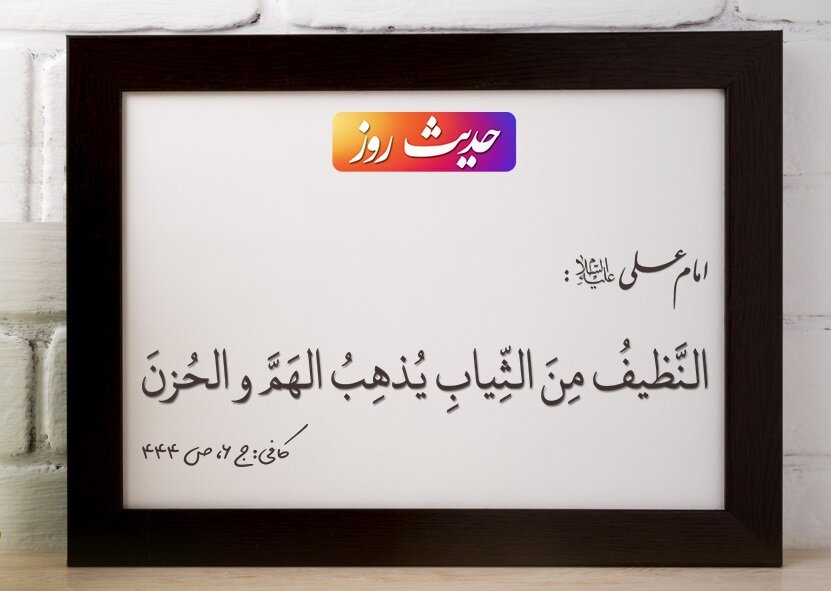 حدیث روز
امام علی علیه‌السلام :
النَّظیفُ مِنَ الثِّیابِ یُذهِبُ الهَمَّ و الحُزنَ
کافی: ج ۶، ص ۴۴۴